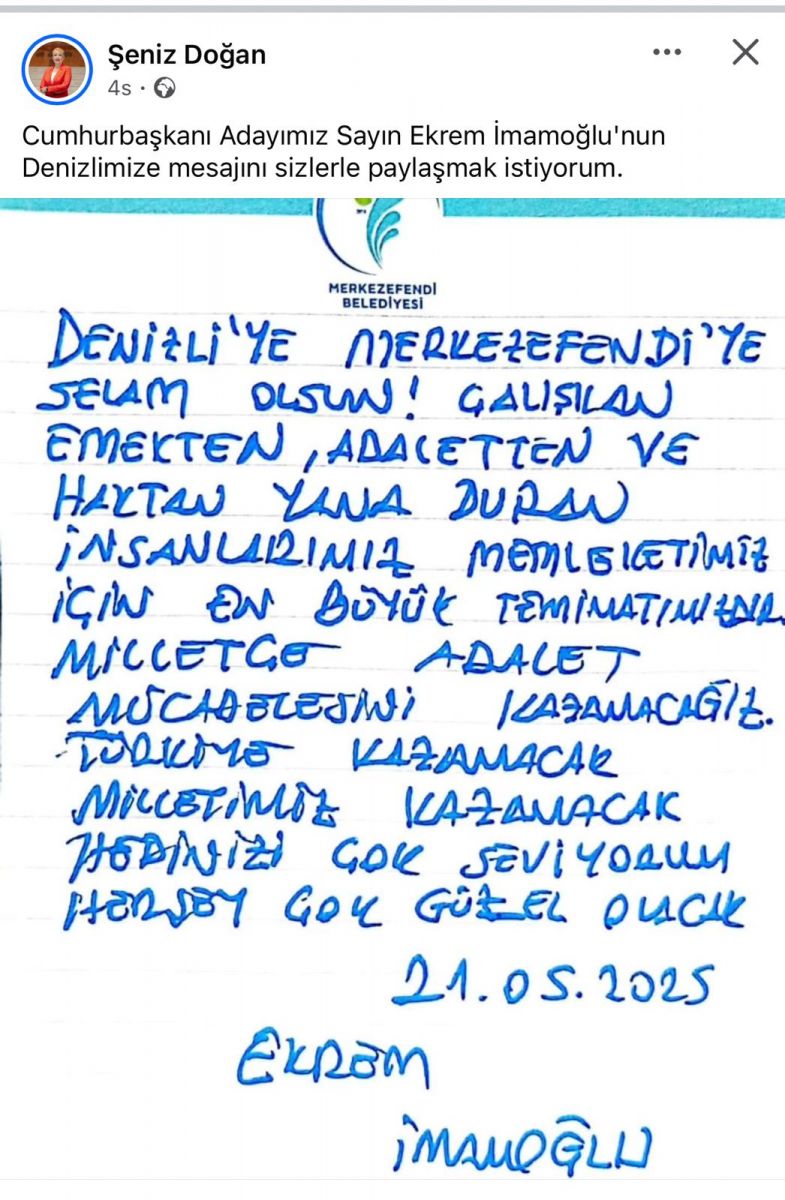 Şeniz Doğan
4s ·
Cumhurbaşkanı Adayımız Sayın Ekrem İmamoğlu'nun
Denizlimize mesajını sizlerle paylaşmak istiyorum.
MERKEZEFENDİ
BELEDİYESİ
DENİZLİ'YE MERKEZEFENDİ'YE
SELAM OLSUN! ÇALIŞILAN
EMEKTEN, ADALETTEN VE
HAKTAN YANA DURAN
İNSANLARIMIZ MEMLEKETİMİZ
İÇİN EN BÜYÜK TEMİNATIMIZDIR.
MİLLETÇE ADALET
MÜCADELESİNİ KAZANACAĞIZ.
TÜRKİYE KAZANACAK
MİLLETİMİZ KAZANACAK
HEPİNİZİ ÇOK SEVİYORUM
HERŞEY ÇOK GÜZEL OLACAK
21.05.2025
EKREM
İMAMOĞLU